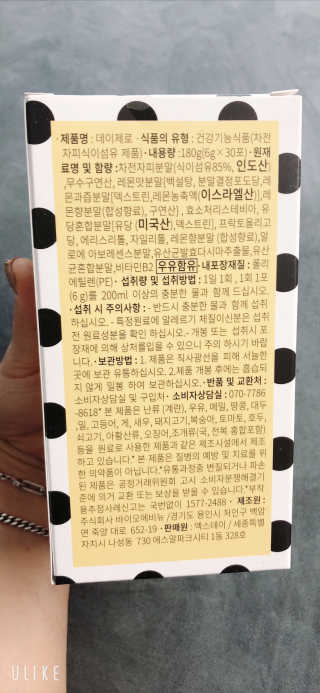 · 제품명 : 데이제로 · 식품의 유형 : 건강기능식품(차전
자피식이섬유 제품) · 내용량 :180g(6g × 30포) · 원재
료명 및 함량 :차전자피분말(식이섬유85%, 인도산)
,무수구연산, 레몬맛분말(백설탕, 분말결정포도당,레
몬과즙분말[덱스트린,레몬농축액(이스라엘산)],레
몬향분말(합성향료), 구연산) , 효소처리스테비아, 유
당혼합분말[유당 (미국산),덱스트린], 프락토올리고
당, 에리스리톨, 자일리톨, 레몬향분말 (합성향료),알
로에 아보레센스분말,유산균발효다시마추출물,유산
균혼합분말,비타민B2 우유함유 · 내포장재질 : 폴리
에틸렌(PE) · 섭취량 및 섭취방법 : 1일 1회 , 1회 1포
(6 g)를 200ml 이상의 충분한 물과 함께 드십시오.
· 섭취 시 주의사항 : - 반드시 충분한 물과 함께 섭취
하십시오. - 특정원료에 알레르기 체질이신분은 섭취
전 원료성분을 확인 하십시오. - 개봉 또는 섭취시 포
장재에 의해 상처를입을 수 있으니 주의 하시기 바랍
니다. · 보관방법 : 1. 제품은 직사광선을 피해 서늘한
곳에 보관 유통하십시오. 2.제품 개봉 후에는 흡습되
지 않게 밀봉 하여 보관하십시오. · 반품 및 교환처 :
소비자상담실 및 구입처 · 소비자상담실 : 070-7786
-8618* 본 제품은 난류 (계란), 우유, 메밀, 땅콩, 대두
,밀, 고등어, 게, 새우, 돼지고기,복숭아, 토마토, 호두,
쇠고기, 아황산류, 오징어,조개류(굴, 전복 홍합포함)
등을 원료로 사용한 제품과 같은 제조시설에서 제조
하고 있습니다.* 본 제품은 질병의 예방 및 치료를 위
한 의약품이 아닙니다.*유통과정중 변질되거나 파손
된 제품은 공정거래위원회 고시 소비자분쟁해결기
준에 의거 교환 또는 보상을 받을 수 있습니다.*부작
용추정사례신고는 국번없이 1577-2488 · 제조원 :
주식회사 바이오메비뉴 /경기도 용인시 처인구 백암
면 죽양 대로 652-19 · 판매원 : 엑스데이 / 세종특별
자치시 나성동 730 에스알파크시티 1동 328호
ULIKE